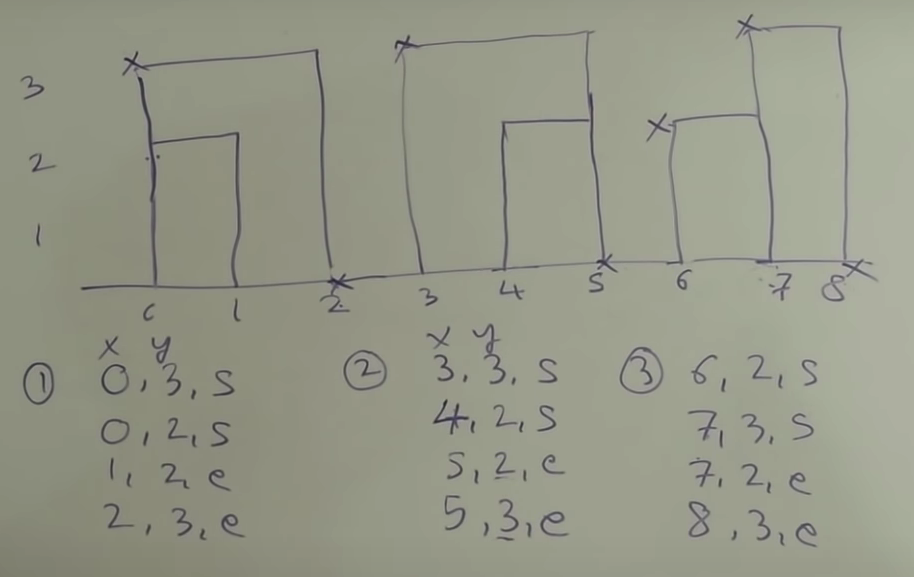 3
2
1
0 1 2 3 4 5 6 7 8
x y
① 0, 3, s
0, 2, s
1, 2, e
2, 3, e
x y
② 3, 3, s
4, 2, s
5, 2, e
5, 3, e
③ 6, 2, s
7, 3, s
7, 2, e
8, 3, e